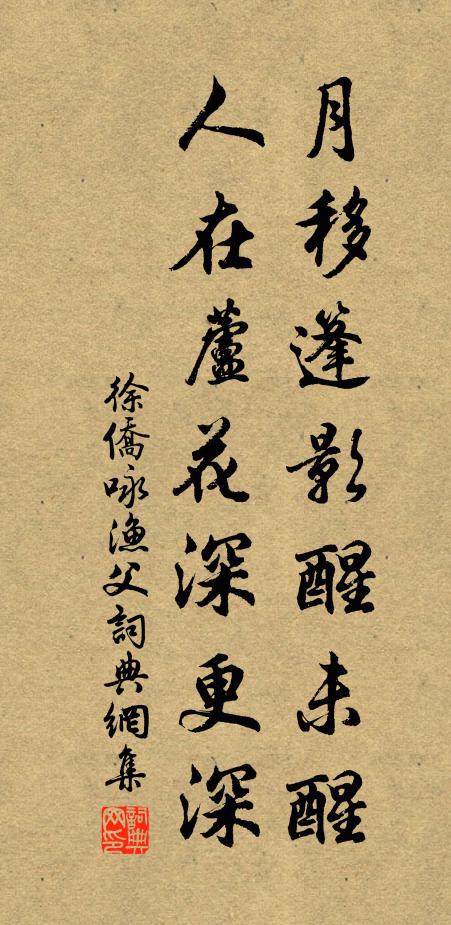 月移篷影醒未醒
人在蘆花深更深
徐僑咏漁父詞典網集
詞典網印